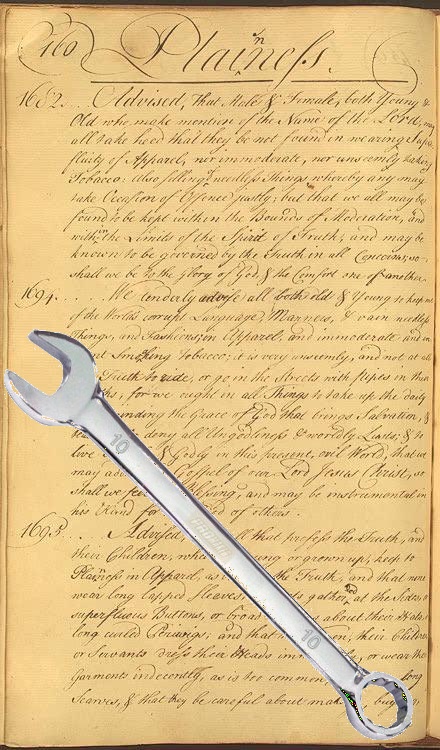 160 Plainess.
1682... Advised, That Male & Female, both Young &
Old who make mention of the Name of the Lord, may
all take heed that they be not found in wearing Supr-
fluity of Apparel, nor immoderate, nor unseemly taking
Tobacco: Also selling needless Things whereby any may
take Occasion of Offence justly; but that we all may be
found to be kept within the Bounds of Moderation, and
within the Limits of the Spirit of Truth; and may be
known to be governed by the Truth in all Concerns, so
shall we be to the Glory of God, & the Comfort one of another.
1694..... We tenderly advise all both old & Young to keep
of the World's corrupt Language, Manners, & vain needless
Things, and Fashions, in Apparel, and immoderate and in
Smoking Tobacco; it is very unseemly, and not at all
Truth to ride, or go in the Streets with pipes in their
for we ought in all Things to take up the daily
the Grace of God that brings Salvation, &
deny all Ungodliness & worldly Lusts; &
live & Godly in this present, evil World; that we
may Gospel of our Lord Jesus Christ, so
shall we Blessing, and may be instrumental in
his Hand of others.
1695. Advised all that profess the Truth, and
their Children, young or grown up, keep to
Plainess in Apparel, as the Truth, and that none
wear long lapped Sleeves, gather'd at the Sides,
superfluous Buttons, or broad about their Hats,
long curled Periwigs, and that their Children
or Servants dress their Heads or wear their
Garments indecently, as is too common long
Scarves, & that they be careful about buying
10
10